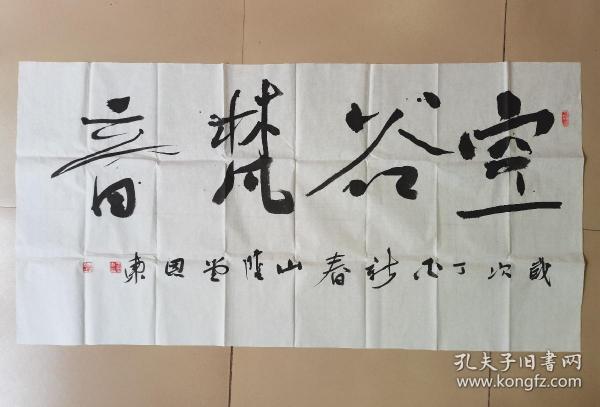 空谷梵音
歲次丁酉新春山堂東
孔夫子旧书网
www.kongfz.com